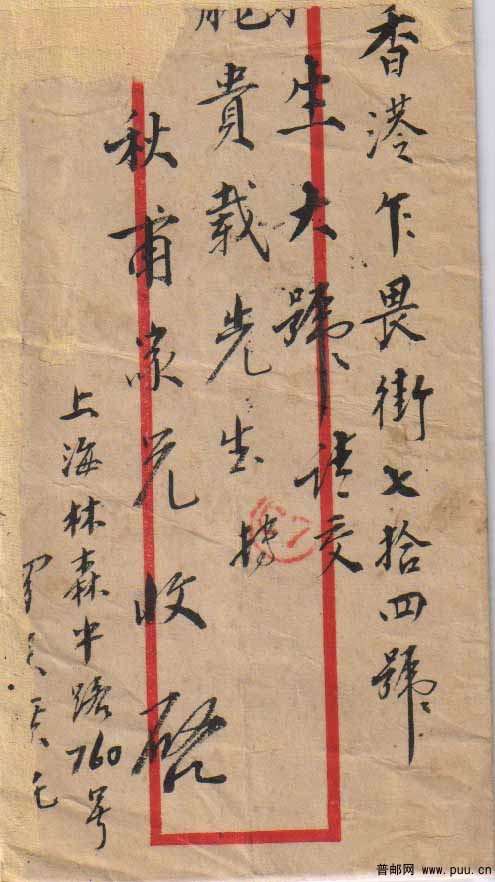 香港乍畏街七拾四號
生大號請交
貴載先生轉
秋甫宗兄收啓
上海林森中路760号
羅
167
普邮网 www.puu.cn